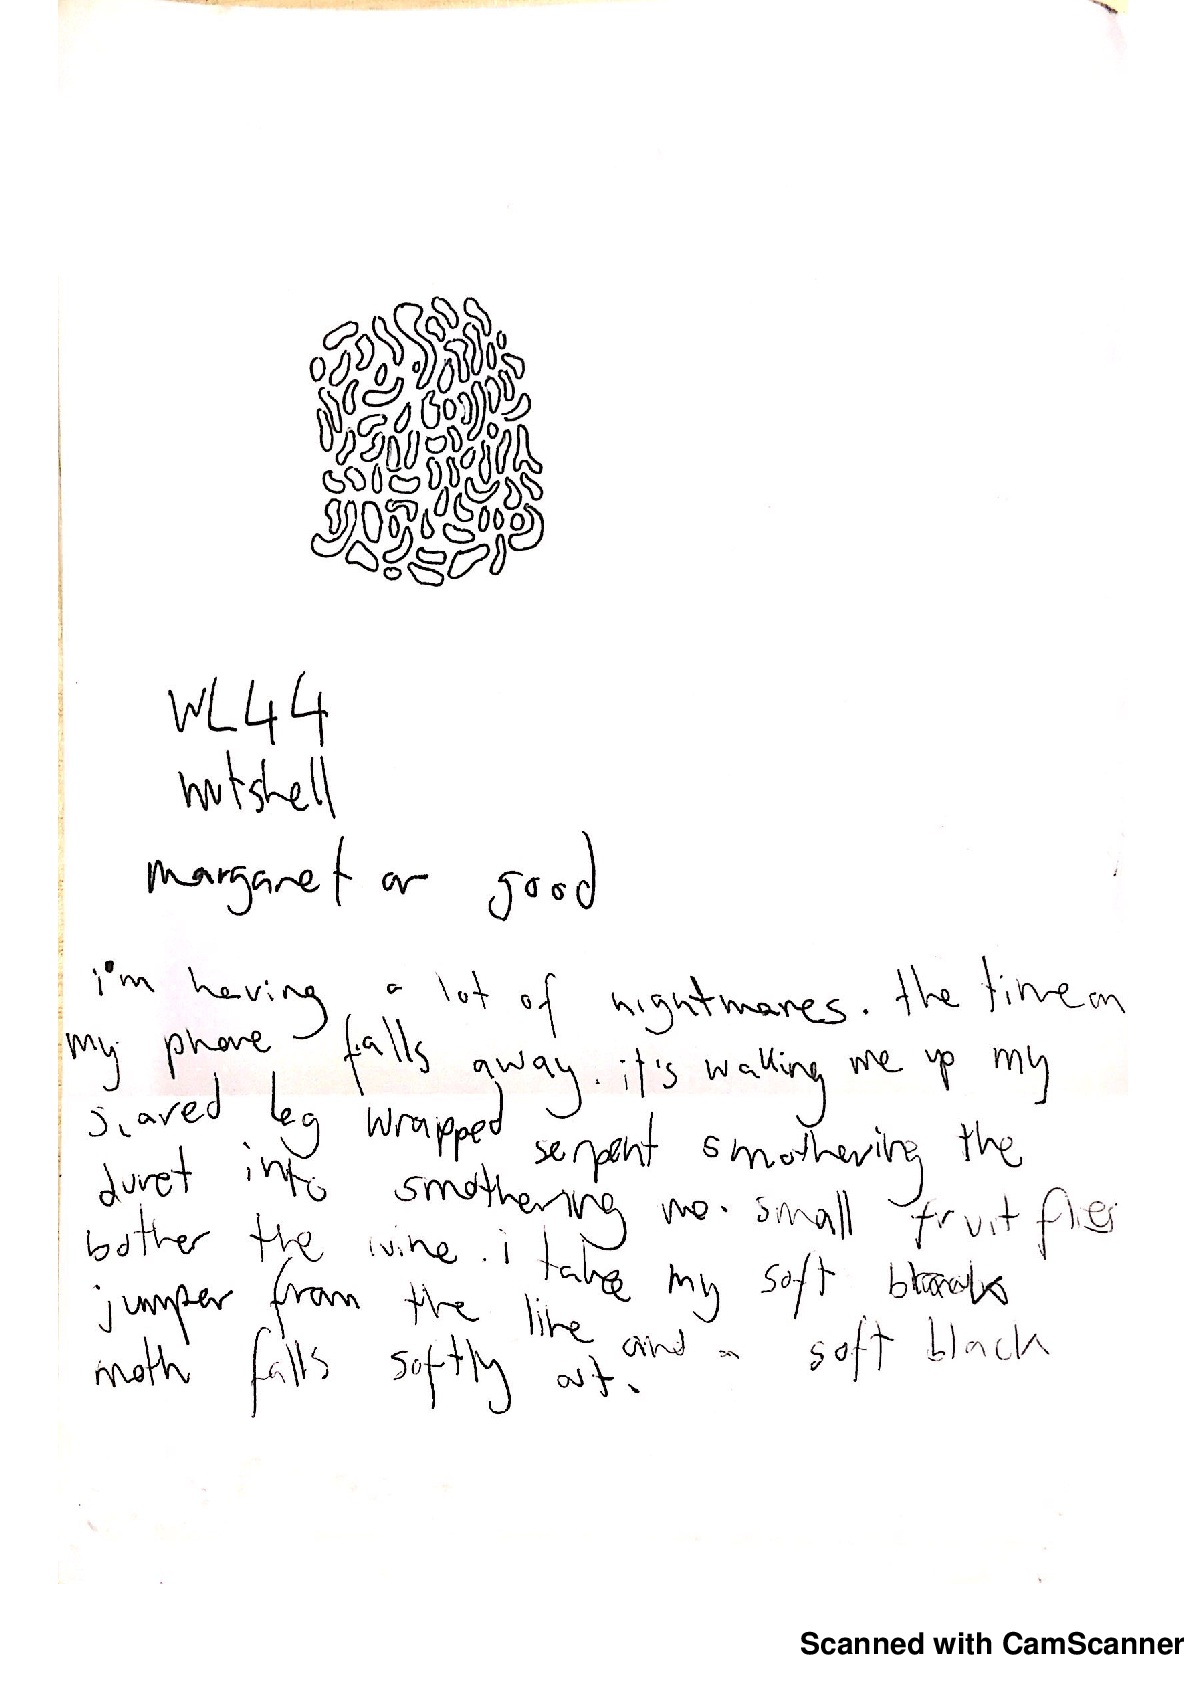 WL44
nutshell
margaret or good
i'm having a lot of nightmares. the time on
my phone falls away. it's waking me up my
scared leg wrapped serpent smothering the
duvet into smothering me. small fruit flies
bother the wine. i take my soft black
jumper from the line and a soft black
moth falls softly out.
Scanned with CamScanner